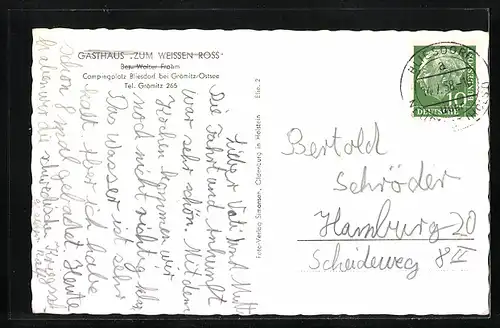 GASTHAUS „ZUM WEISSEN ROSS"
Bes. Walter Frahm
Campingplatz Bliesdorf bei Grömitz/Ostsee
Tel. Grömitz 265
Lieber Vati und Mutti
Die Fahrt und Ankunft
war sehr schön. Mit dem
Kochen kommen wir
noch nicht richtig klar.
Das Wasser ist sehr
kalt. Aber ich habe
schon 8 mal gebadet. Heute
haben wir die
Foto-Verlag Simonsen, Oldenburg in Holstein
Blie. 2
10
DEUTSCHE BUNDESPOST
Bertold
Schröder
Hamburg 20
Scheideweg 8 II